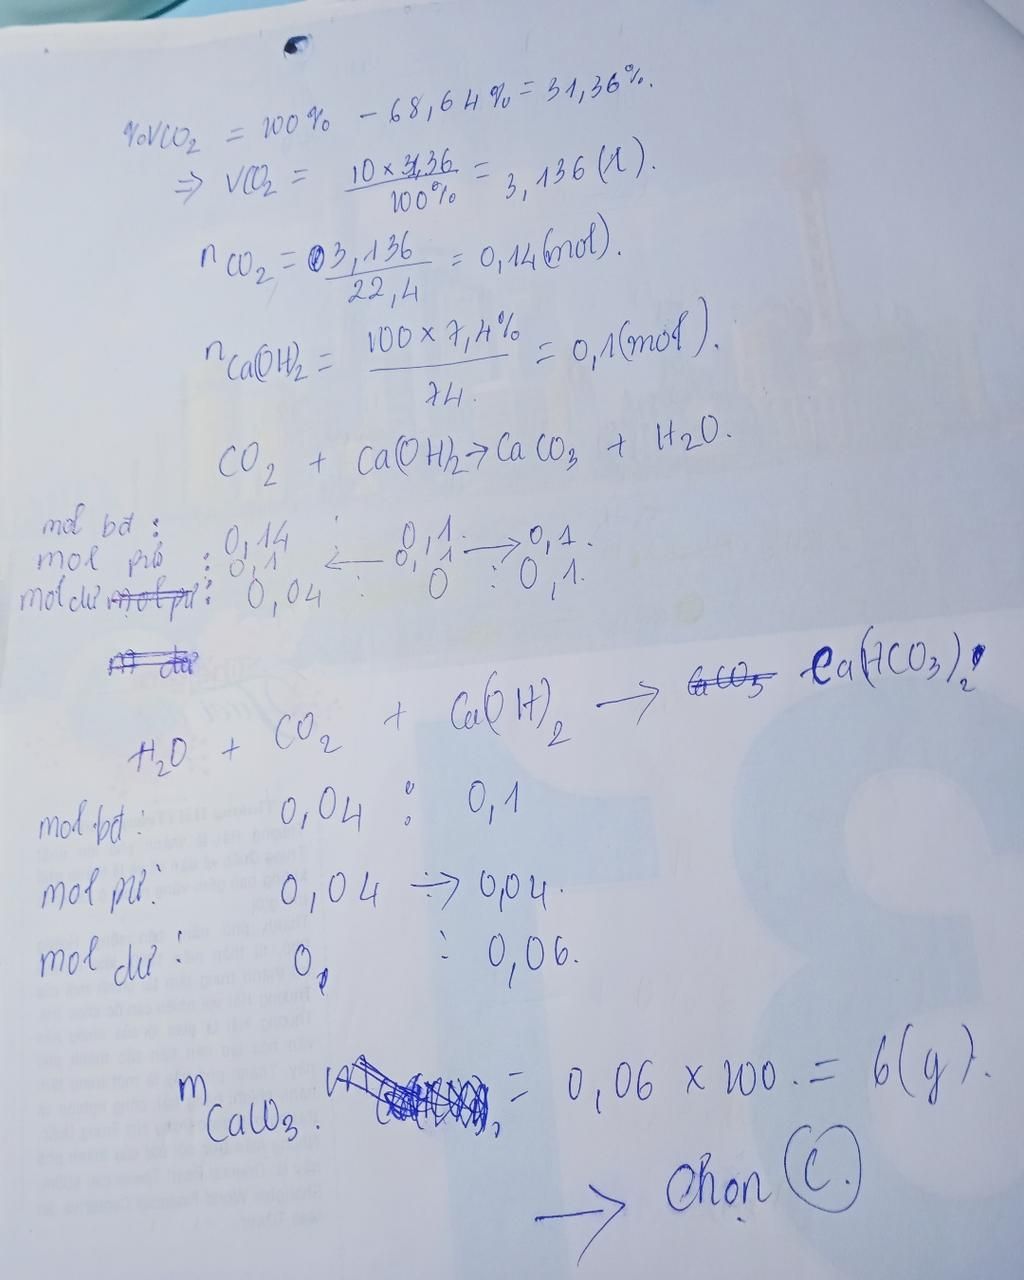 %VCO2 = 100% - 68,64% = 31,36%.
=> VCO2 = 10 × 31,36 / 100% = 3,136 (l).
nCO2 = 3,136 / 22,4 = 0,14 (mol).
nCa(OH)2 = 100 × 7,4% / 74. = 0,1 (mol).
CO2 + Ca(OH)2 → CaCO3 + H2O.
mol bđ : 0,14 : 0,1.
mol pứ : 0,1 ← 0,1 → 0,1.
mol dư : 0,04 : 0 : 0,1.
H2O + CO2 + Ca(OH)2 → Ca(HCO3)2
mol bđ: 0,04 : 0,1
mol pứ: 0,04 → 0,04.
mol dư : 0 : 0,06.
mCaCO3. = 0,06 × 100. = 6 (g).
→ Chọn C.